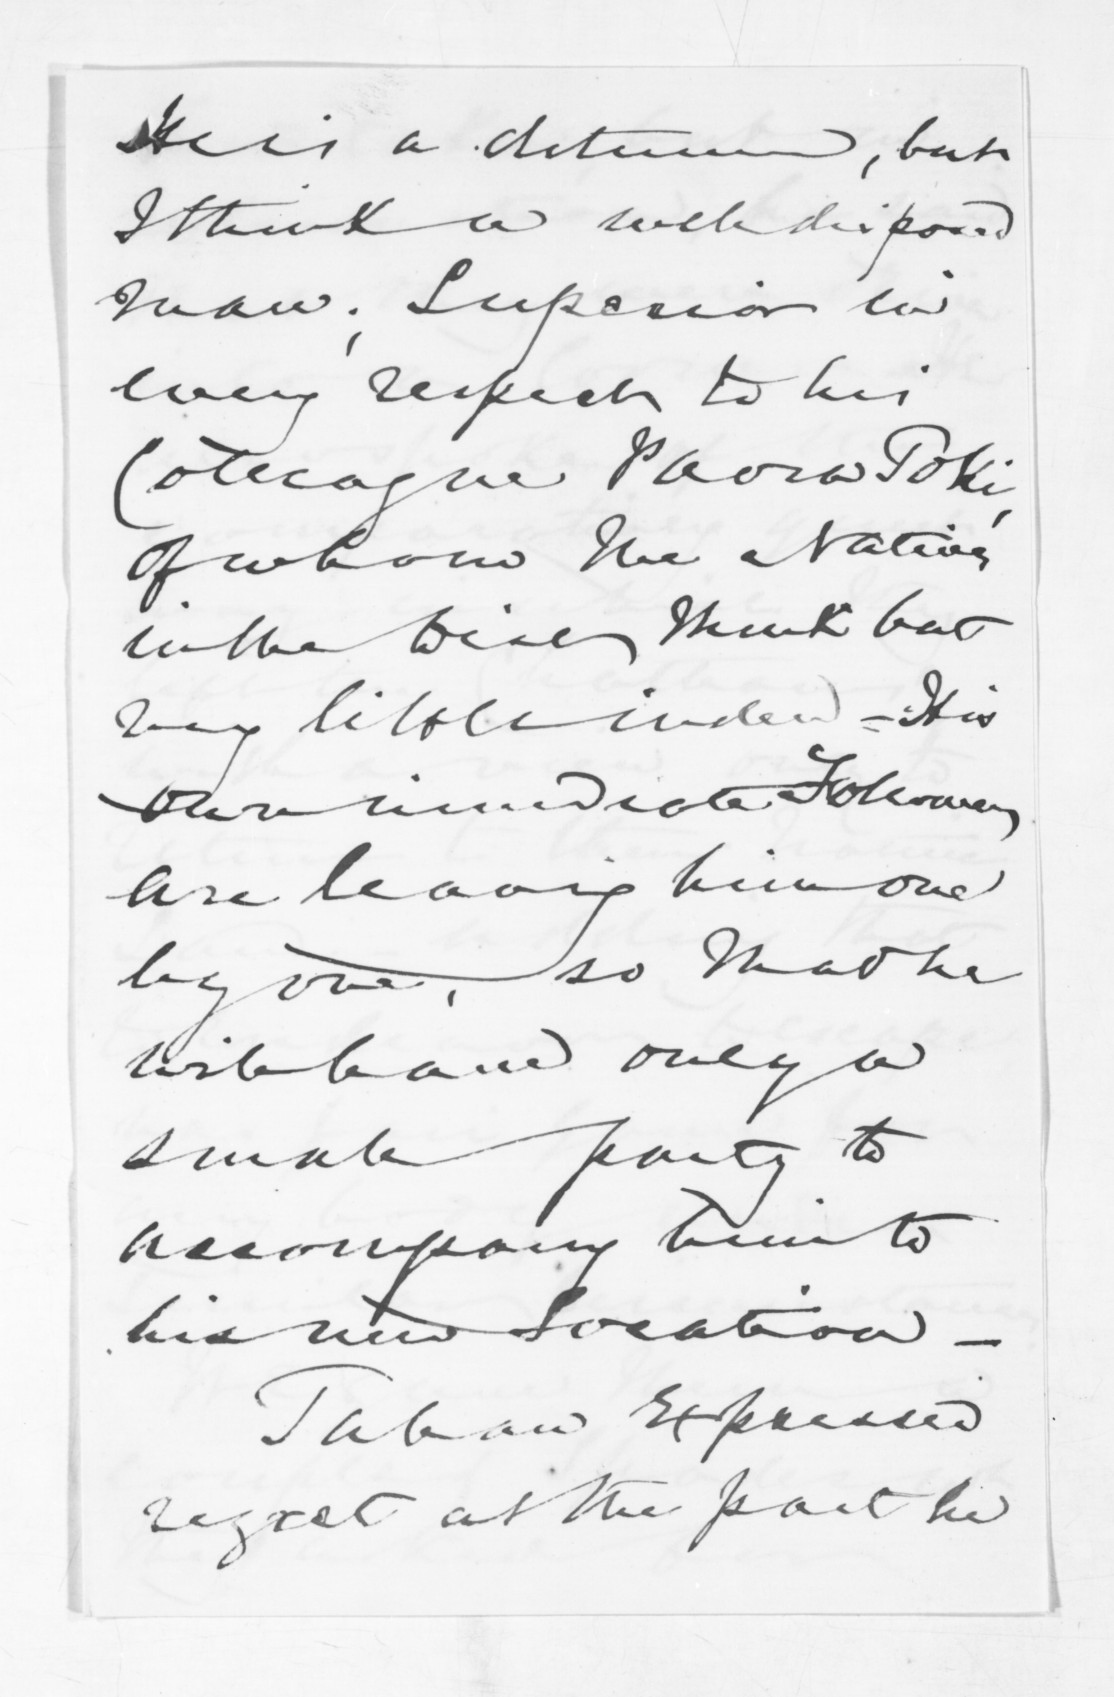 He is a determined, but
I think a well disposed
man; Superior in
every respect to his
Colleague Paora Toki,
of whom the Natives
in the tribe think but
very little indeed - His
own immediate Followers
are leaving him one
by one, so that he
will have only a
small party to
accompany him to
his new Location -
Tahau Expressed
regret at the part he